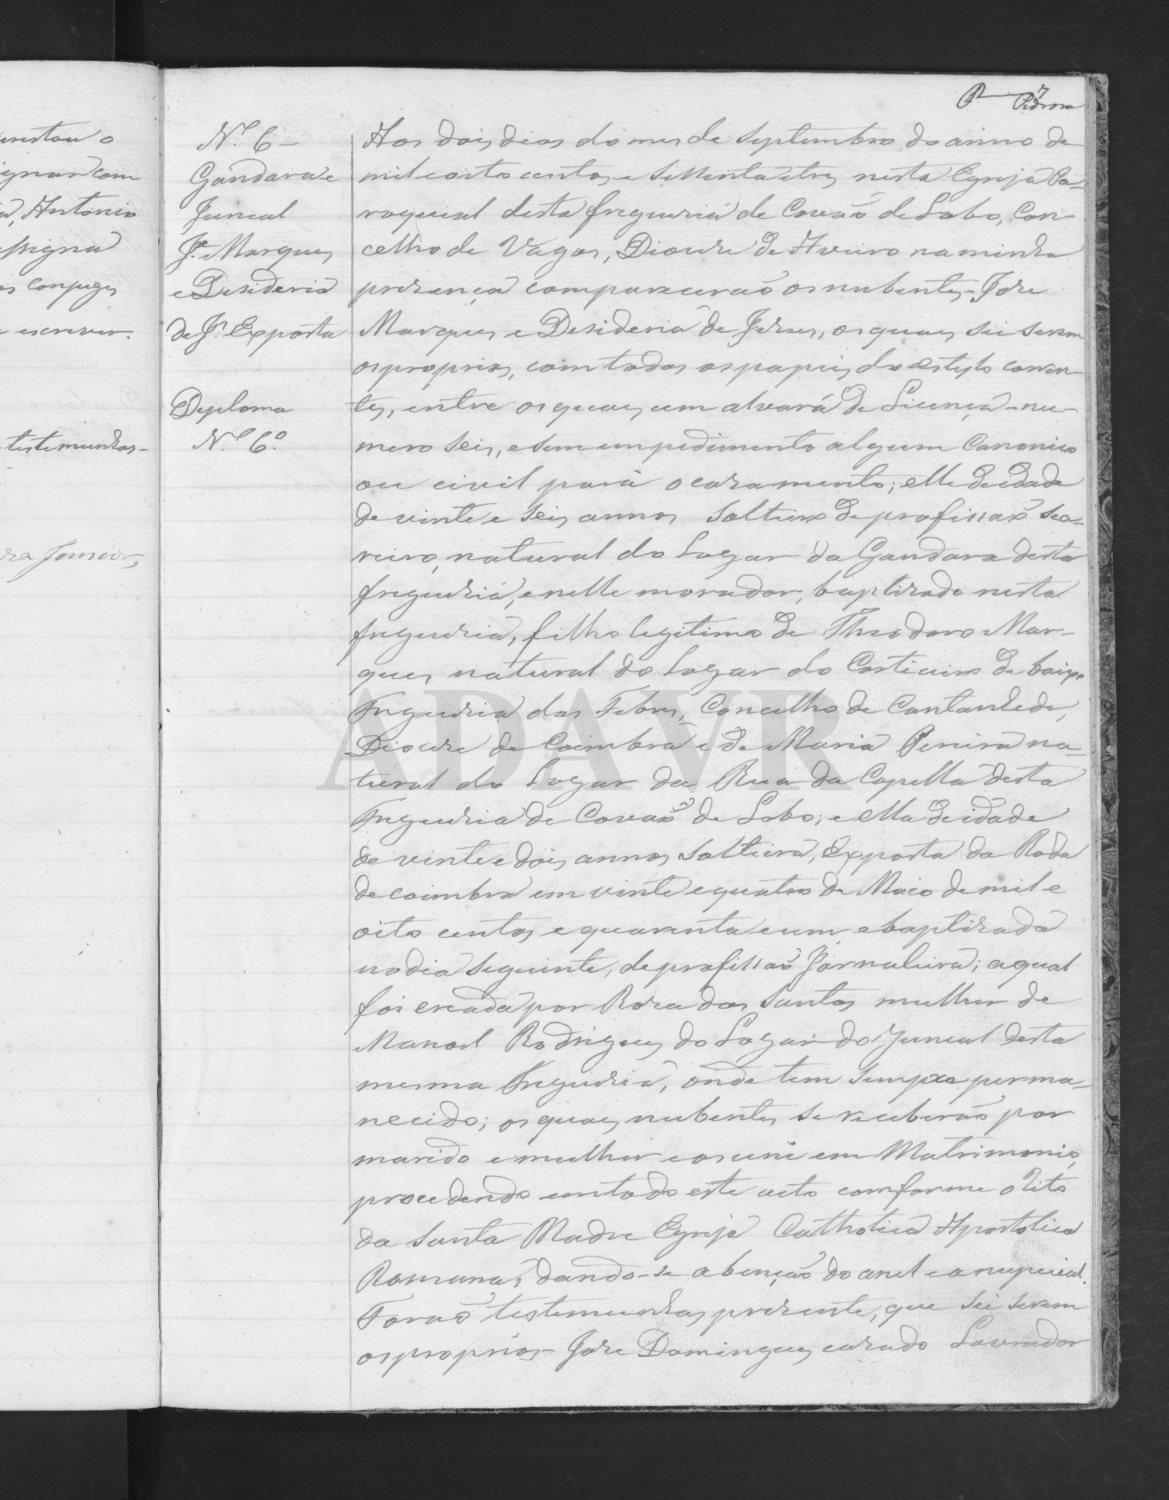 7
Pedrosa
N.º 6 -
Gandara e
Juncal
J.e Marques
e Desideria
de J.s Exposta
Diploma
N.º 6.º
Aos dois dias do mes de Septembro do anno de
mil e oito centos e settenta e tres nesta Egreja Pa-
roquial desta freguesia de Covaõ de Lobo, Con-
celho de Vagos, Diocese de Aveiro na minha
presença compareceraõ os nubentes - Jose
Marques e Desideria de Jesus, os quaes sei serem
os proprios, com todos os papeis do estylo corren-
tes, entre os quaes um alvará de Licença - nu-
mero seis, e sem impedimento algum canonico
ou civil para o casamento; elle de idade
de vinte e seis annos solteiro de profissaõ Sea-
reiro, natural do Logar da Gandara desta
freguesia, e nelle morador, baptisado nesta
freguesia, filho legitimo de Theodoro Mar-
ques natural do Logar do Corticeiro de baixo
Freguesia das Febres, Concelho de Cantanhede,
Diocese de Coimbra e de Maria Pereira na-
tural do Logar da Rua da Capella desta
Freguesia de Covaõ de Lobo; e ella de idade
de vinte e dois annos solteira, Exposta da Roda
de Coimbra em vinte e quatro de Maio de mil e
oito centos e quarenta e um e baptisada
no dia seguinte, de profissaõ Jornaleira; a qual
foi creada por Rosa dos Santos mulher de
Manoel Rodrigues do Logar do Juncal desta
mesma Freguesia, onde tem sempre perma-
necido; os quaes nubentes se receberaõ por
marido e mulher e os uni em Matrimonio,
procedendo em todo este acto comforme o Rito
da Santa Madre Egreja Catholica Apostolica
Romana, dando-se a bençaõ do anel e a nupcial.
Foraõ testemunhas presentes, que sei serem
os proprios - Jose Domingues casado Lavrador
o
com
Antonio
assigna
os conjuges
escrever.
testemunhas -
Junior,
ADAVR